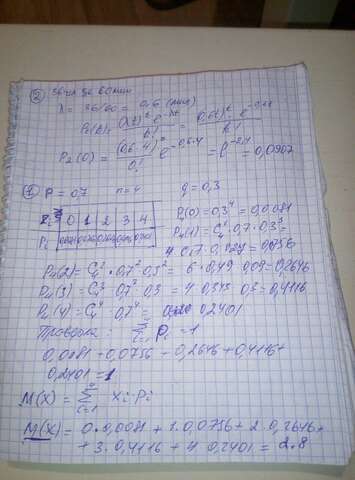 ② 36 чел за 60 мин
λ = 36/60 = 0,6 (мин)
Pₜ(k) = (λt)ᵏ e^(-λt) / k! = (0,6t)ᵏ · e^(-0,6t) / k!
P₂(0) = (0,6·4)⁰ / 0! e^(-0,6·4) = e^(-2,4) = 0,0907
① P = 0,7 n = 4 q = 0,3
0 1 2 3 4 P(0) = 0,3⁴ = 0,0081
Pᵢ P₄(1) = C₄¹ · 0,7 · 0,3³ =
4 · 0,7 · 0,027 = 0,0756
P₄(2) = C₄² · 0,7² 0,3² = 6 · 0,49 0,09 = 0,2646
P₄(3) = C₄³ · 0,7³ · 0,3 = 4 0,343 0,3 = 0,4116
P₄(4) = C₄⁴ · 0,7⁴ = 0,2401
Проверка : Σ Pᵢ = 1
0,0081 + 0,0756 + 0,2646 + 0,4116 +
0,2401 = 1
M(X) = Σ xᵢ · Pᵢ
M(X) = 0 · 0,0081 + 1 · 0,0756 + 2 · 0,2646 +
+ 3 · 0,4116 + 4 · 0,2401 = 2.8